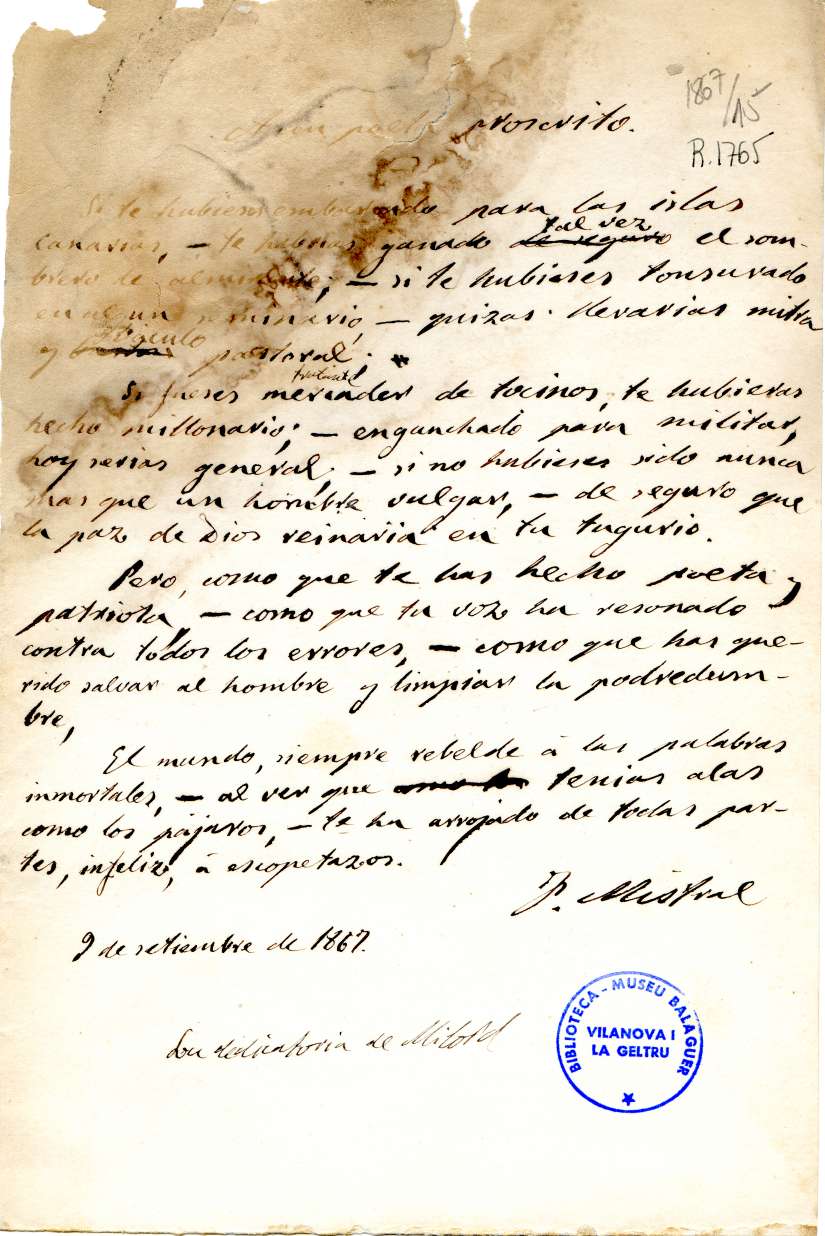 1867/15
R.1765
A un poeta proscrito.
Si te hubieses embarcado para las islas
canarias, – te habrias ganado de seguro tal vez el som-
brero de almirante; – si te hubieses tonsurado
en algun seminario, – quizas llevarias mitra
y báculo pastoral;
Si fueses mercader tratante de tocinos, te hubieras
hecho millonario; – enganchado para militar,
hoy serias general; – si no hubieses sido nunca
mas que un hombre vulgar, – de seguro que
la paz de Dios reinaria en tu tugurio.
Pero, como que te has hecho poeta y
patriota, – como que tu voz ha resonado
contra todos los errores, – como que has que-
rido salvar al hombre y limpiar la podredum-
bre,
El mundo, siempre rebelde á las palabras
inmortales, – al ver que tenias alas
como los pájaros, – te ha arrojado de todas par-
tes, infeliz, á escopetazos.
F. Mistral
9 de setiembre de 1867.
dedicatoria de
BIBLIOTECA - MUSEU BALAGUER
VILANOVA I
LA GELTRU